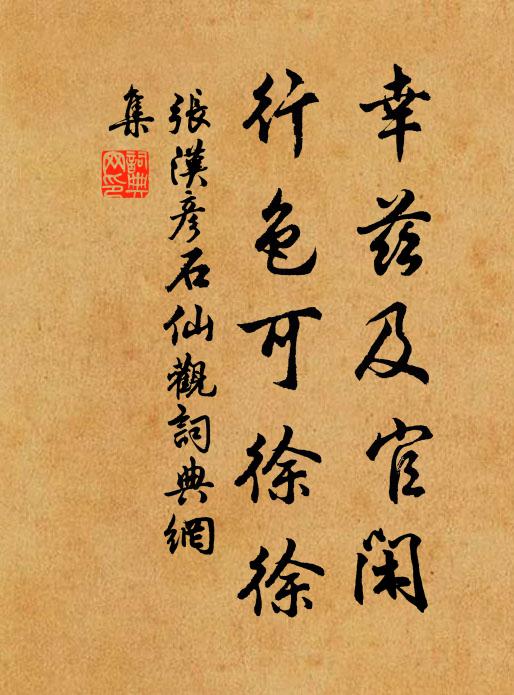 幸茲及官閑
行色可徐徐
張漢彥石仙觀詞典網
集
詞典
网印